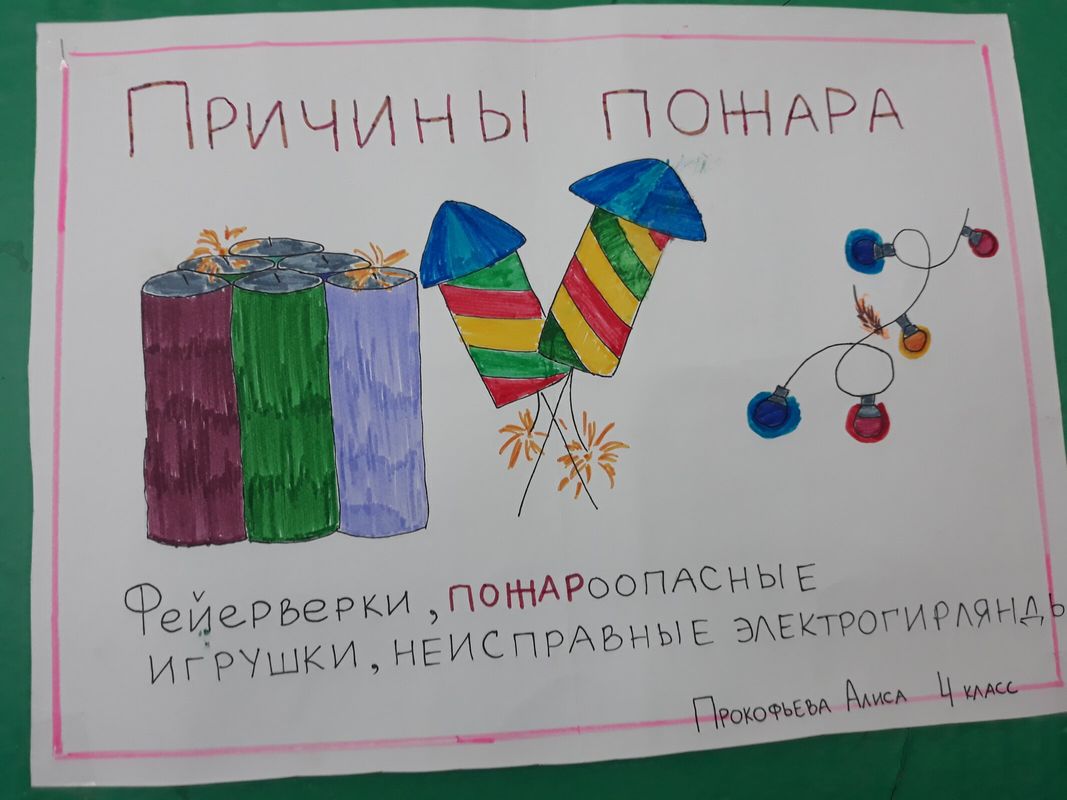 Причины пожара
Фейерверки, пожароопасные
игрушки, неисправные электрогирлянды
Прокофьева Алиса 4 класс